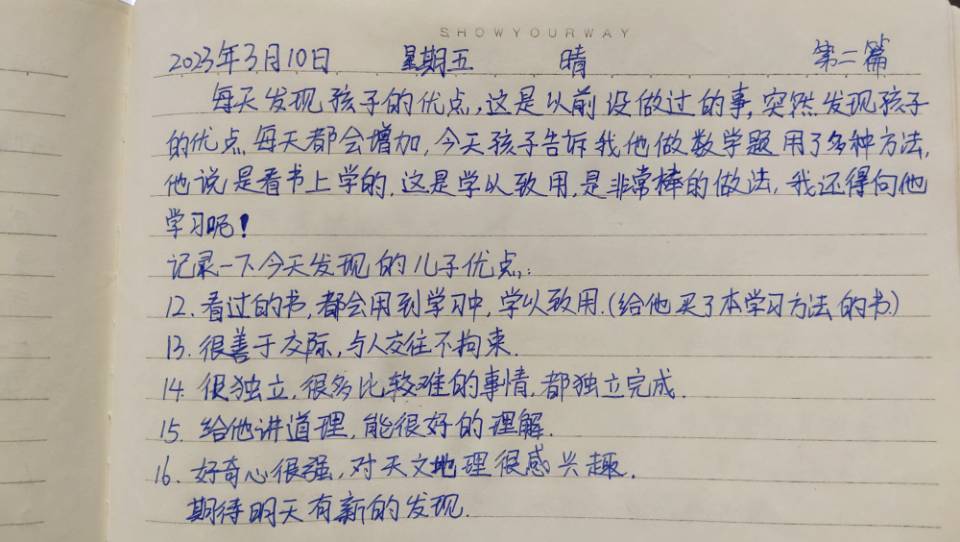 SHOWYOURWAY
2023年3月10日 星期五 晴 第二篇
每天发现孩子的优点,这是以前没做过的事,突然发现孩子
的优点每天都会增加,今天孩子告诉我他做数学题用了多种方法,
他说是看书上学的,这是学以致用,是非常棒的做法,我还得向他
学习呢!
记录一下今天发现的儿子优点:
12.看过的书,都会用到学习中,学以致用.(给他买了本学习方法的书)
13.很善于交际,与人交往不拘束.
14.很独立,很多比较难的事情,都独立完成.
15.给他讲道理,能很好的理解.
16.好奇心很强,对天文地理很感兴趣.
期待明天有新的发现.